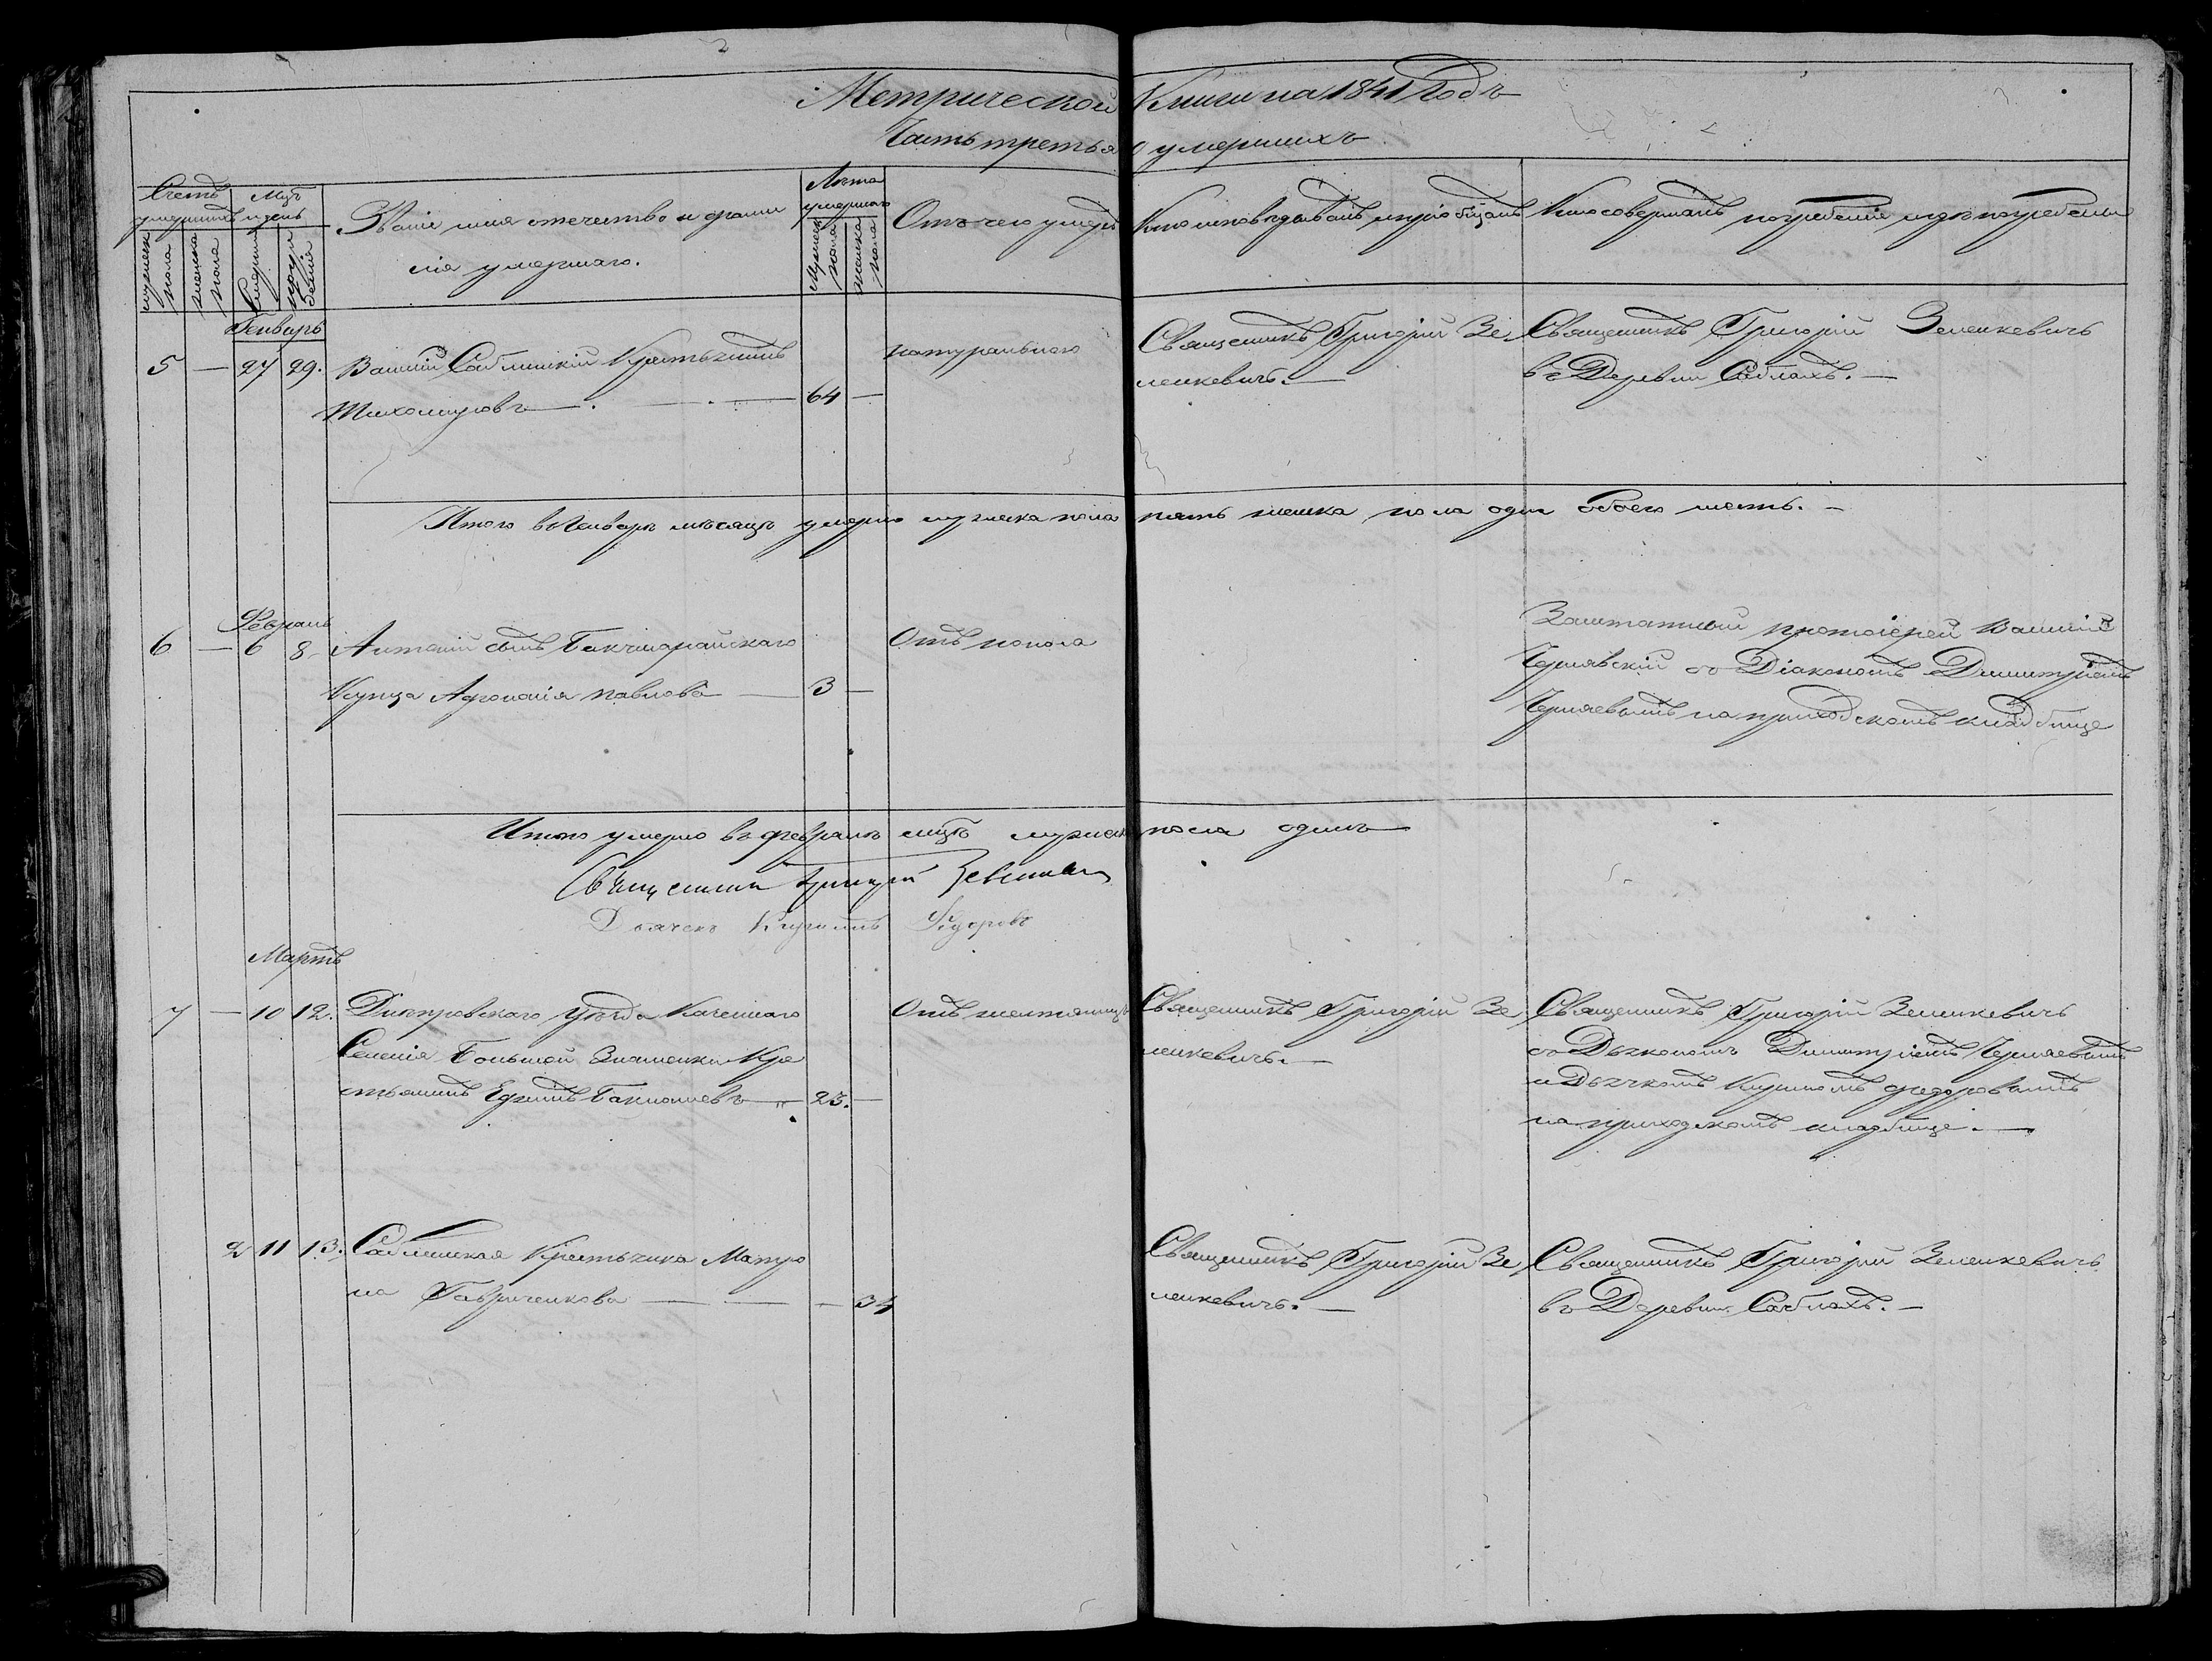 Метрической Книги на 1841 Годъ
Часть третья о умершихъ
Счетъ умершихъ
мужеск пола
женска пола
Мцъ и день
Смерти
погребенія
Званіе имя отечество и фамилія умершаго.
Лѣта умершаго
Мужеск пола
женска пола
Отъ чего умеръ
Кто исповѣдывалъ и пріобщалъ
Кто совершалъ погребеніе и гдѣ погребены
Генварь
5 — 27 29. Василій Саблинскій Крестьянинъ
Тихомировъ — 64 —
натурального
Священникъ Григорій Зе
ленкевичъ. —
Священникъ Григорій Зеленкевичъ
въ Деревни Саблахъ. —
Итого въ Генварѣ мѣсяцѣ умерло мужеска пола пять женска пола одна обоего шесть. —
Февраль
6 — 6 8 Антоній сынъ Бакчисарайскаго
Купца Афонасія Павлова — 3 —
Отъ
Заштатный протоіерей Василій
Чернявскій съ Діакономъ Димитріемъ
Черняевымъ на приходскомъ кладбище
Итого умерло въ февралѣ мцѣ мужеск пола одинъ
Священникъ Григорій
Дьячекъ Кирилъ Федоровъ
Мартъ
7 — 10 12. Днѣпровскаго уѣзда Казеннаго
Селенія Большой Знаменки Кре
стьянинъ — 23. —
Отъ
Священникъ Григорій Зе
ленкевичъ. —
Священникъ Григорій Зеленкевичъ
съ Дьякономъ Димитріемъ Черняевымъ
и Дьячкомъ Кириломъ Федоровымъ
на приходскомъ кладбище. —
2 11 13. Саблинская Крестьянка Матро
на Гавриченкова — — 34
Священникъ Григорій Зе
ленкевичъ. —
Священникъ Григорій Зеленкевичъ
въ Деревни Саблахъ. —